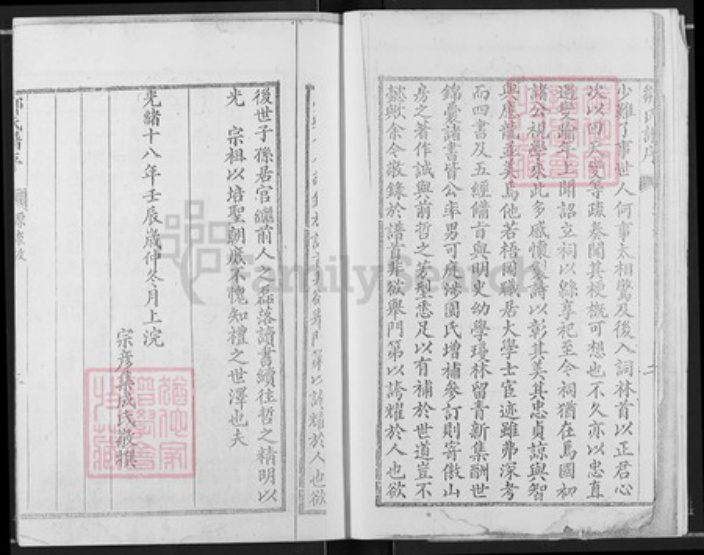 鄒氏譜序
少難了事世人何事太相驚及後入詞林首以正君心
次以回天變等疏奏聞其梗概可想也不久亦以忠直
遊變踰年上聞詔立祠以綿享祀至今祠猶在焉國初
諸公視學來此多感懷製詩以彰其美其忠貞諒與智
與應龍並美焉他若梧岡職居大學士宦迹雖弗深考
而四書及五經備旨與明史幼學瓊林留青新集酬世
錦囊諸書皆公率男可庭涉園氏增補參訂則寄傲山
房之著作誠與前哲之芳型悉足以有補於世道豈不
懿歟余今敬錄於譜首非欲舉門第以誇耀於人也欲
二
後世子孫居官繼前人之磊落讀書續往哲之精明以
光 宗祖以培聖朝庶不愧知禮之世澤也夫
光緒十八年壬辰歲仲冬月上浣
宗彥集成氏敬撰
FamilySearch